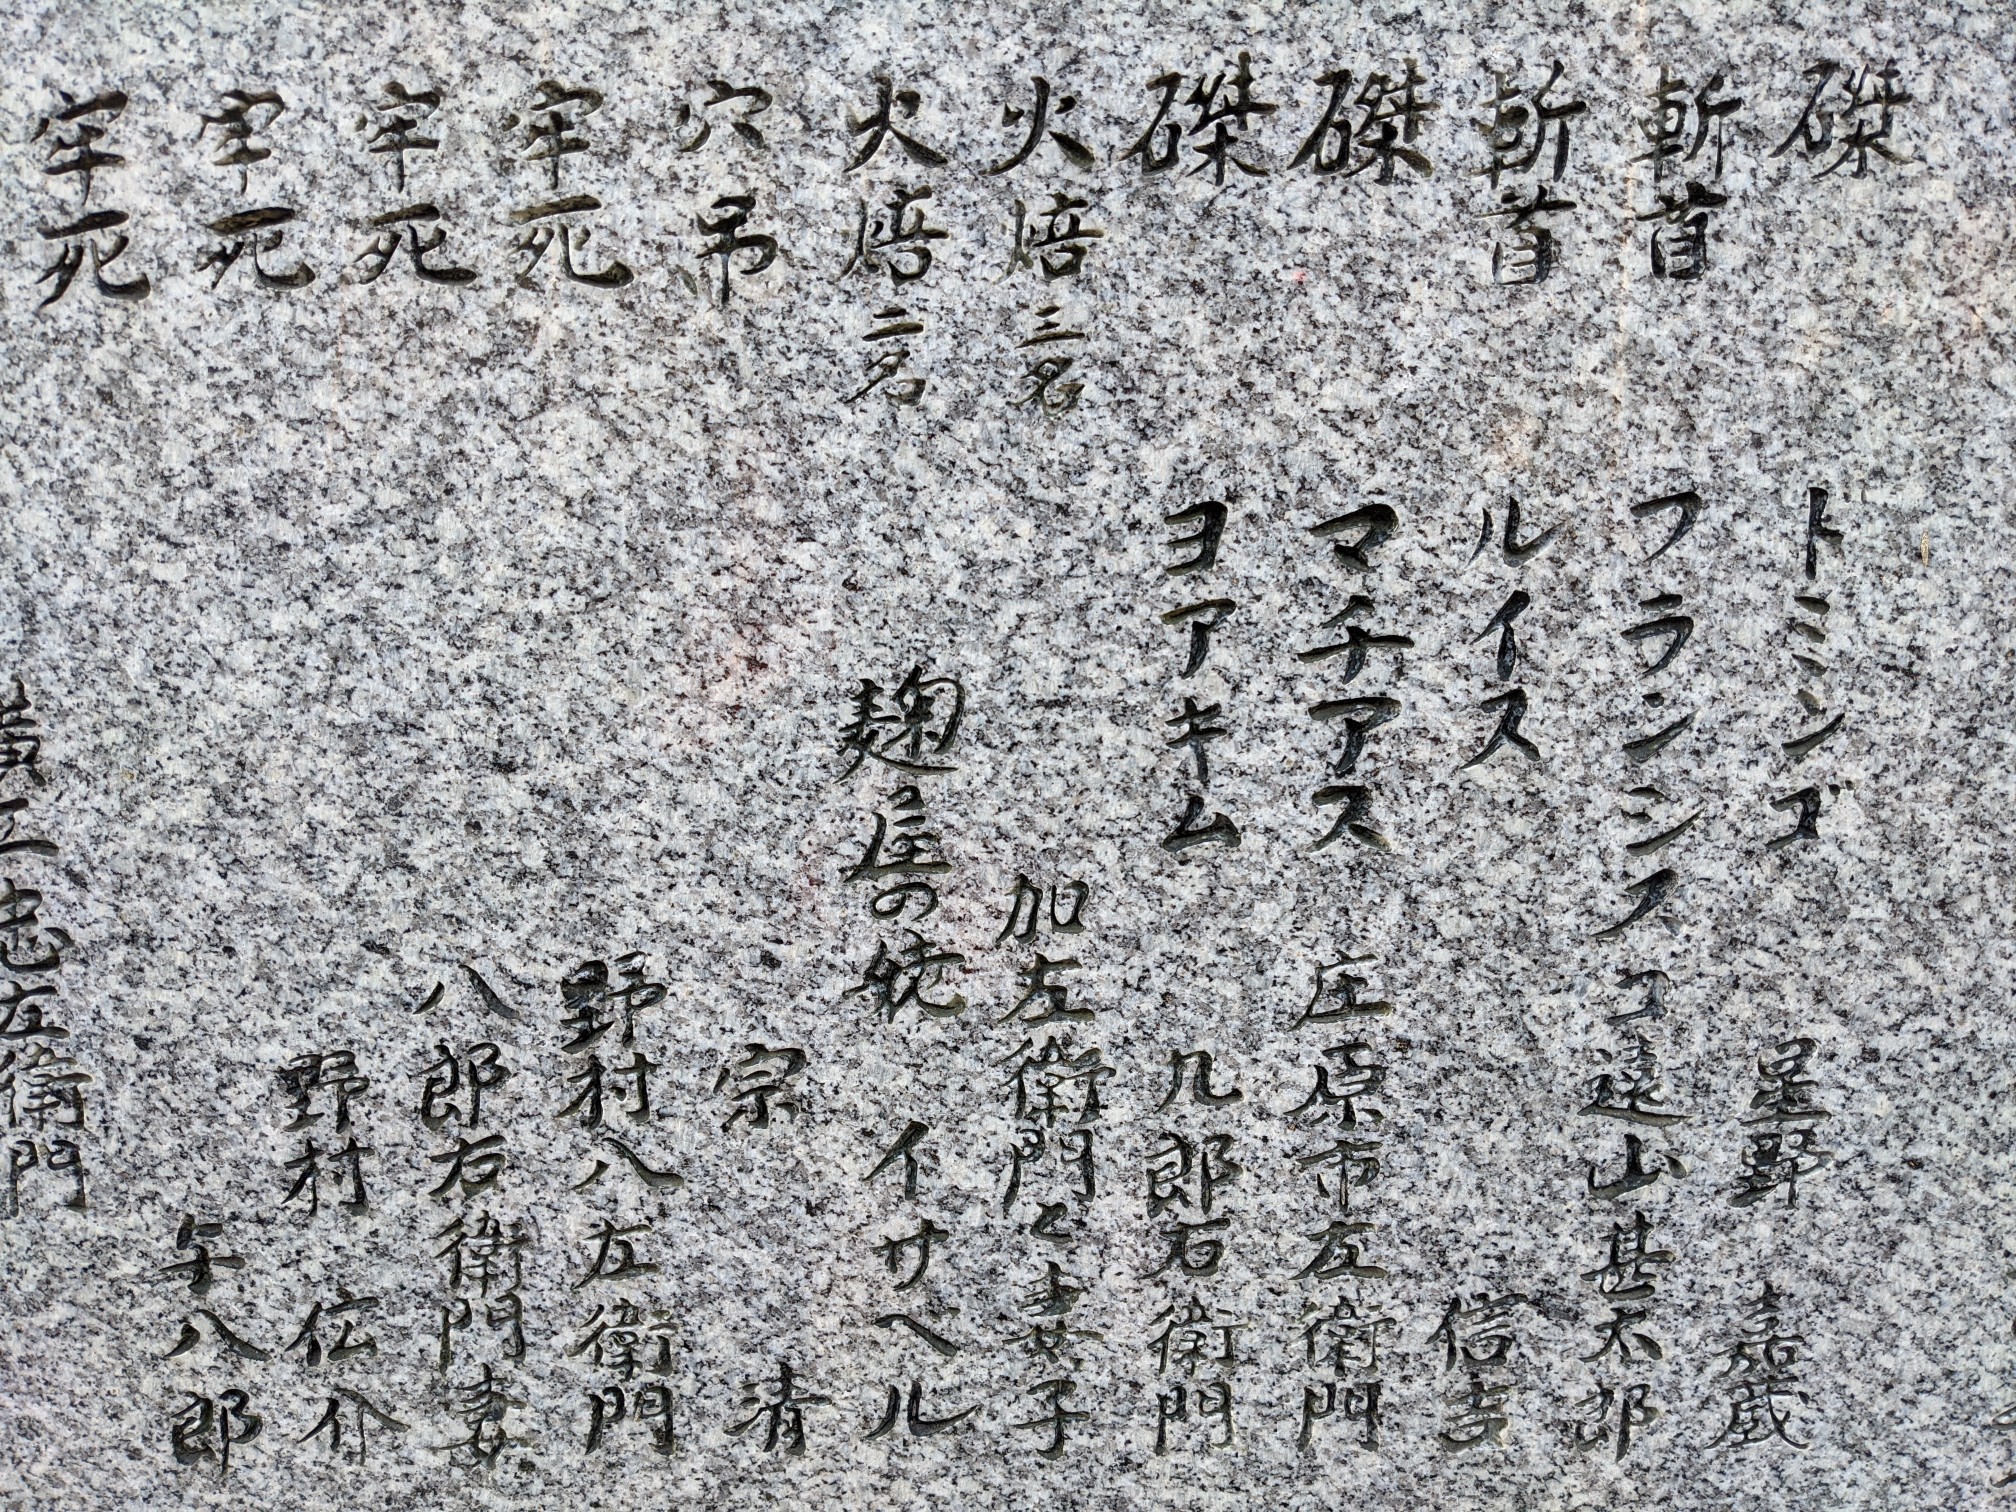 磔 ドミンゴ 星野 嘉蔵
斬首 フランシスコ 遠山甚太郎
斬首 ルイス 信吉
磔 マチアス 庄原市左衛門
磔 ヨアキム 九郎右衛門
火焙 三名 加左衛門と妻子
火焙 二名 麹屋の妣 イサベル
穴吊 宗 清
牢死 野村八左衛門
牢死 八郎右衛門妻
牢死 野村 仏介
牢死 与八郎
忠左衛門